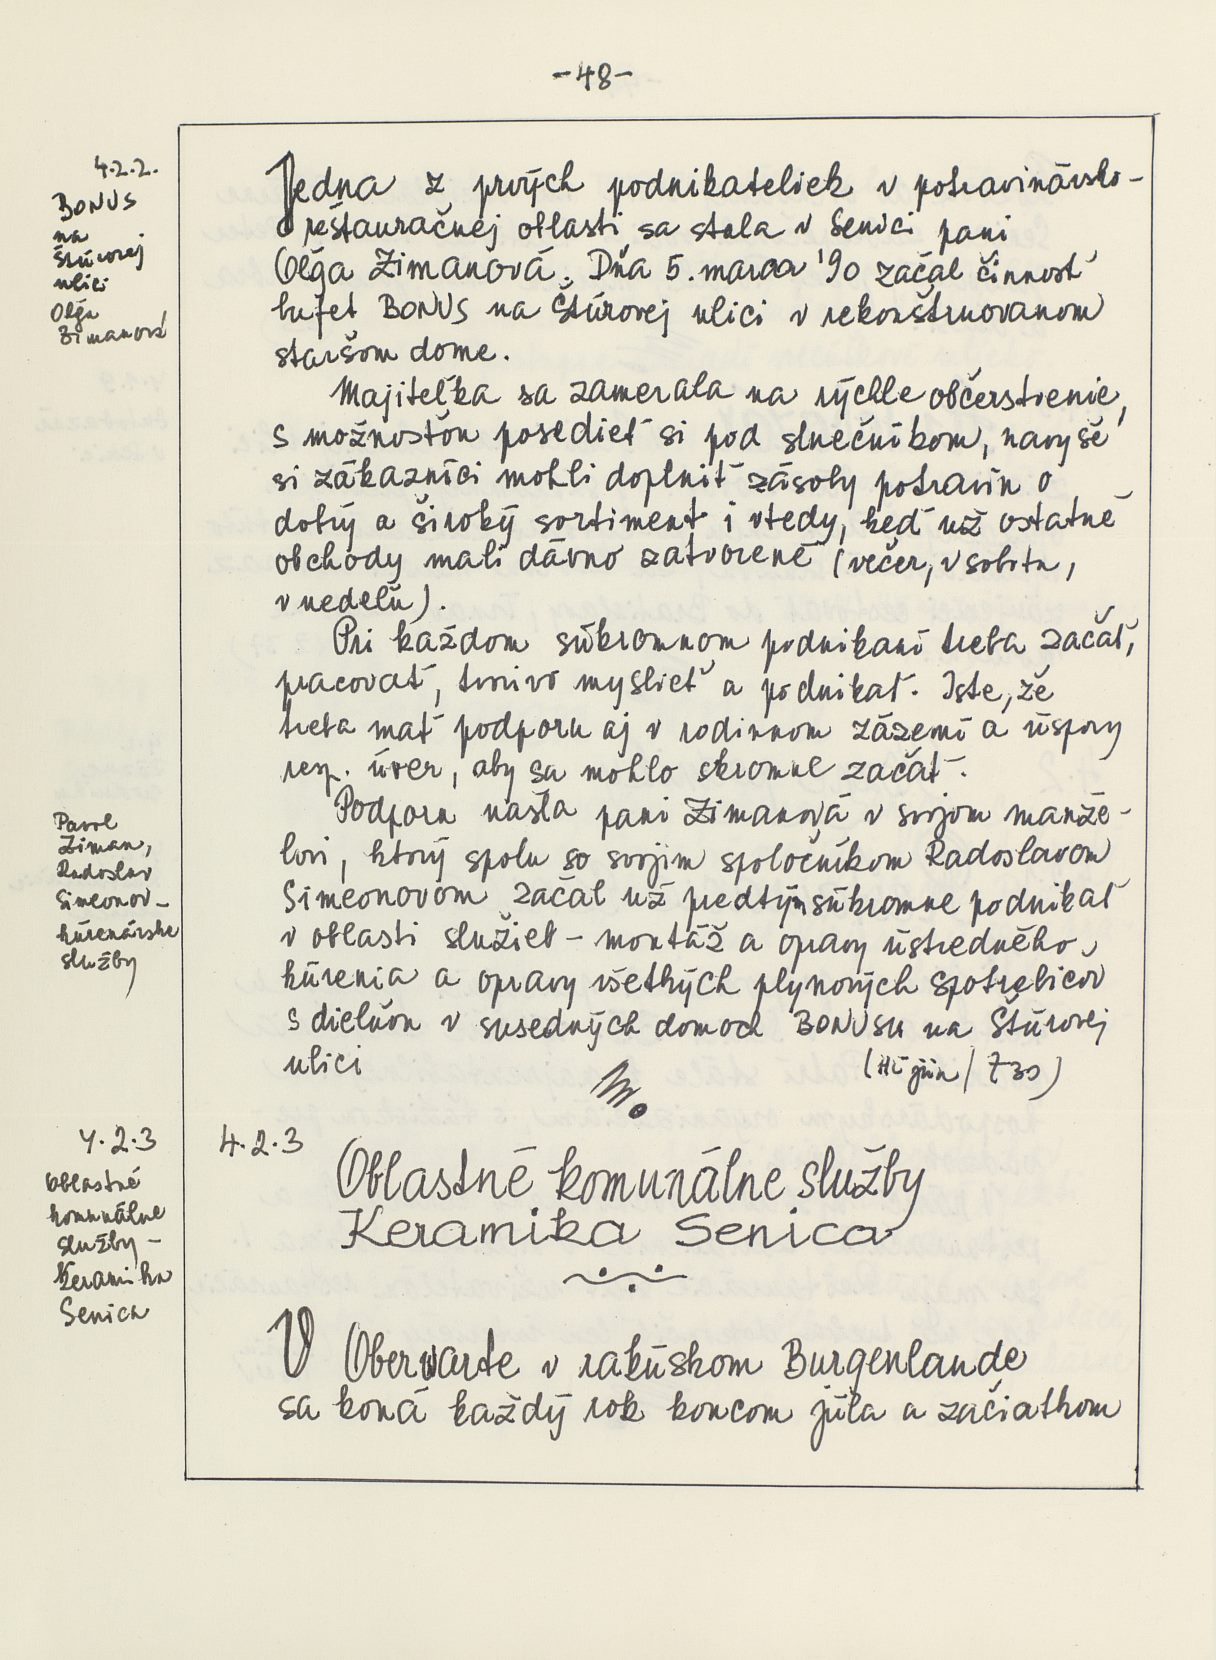 -48-
4.2.2.
BONUS
na
Štúrovej
ulici
Oľga
Zimanová
Jedna z prvých podnikateliek v potravinársko-
reštauračnej oblasti sa stala v Senici pani
Oľga Zimanová. Dňa 5. marca '90 začal činnosť
bufet BONUS na Štúrovej ulici v rekonštruovanom
staršom dome.
Majiteľka sa zamerala na rýchle občerstvenie,
s možnosťou posedieť si pod slnečníkom, navyše
si zákazníci mohli doplniť zásoby potravín o
dobrý a široký sortiment i vtedy, keď už ostatné
obchody mali dávno zatvorené (večer, v sobotu,
v nedeľu).
Pri každom súkromnom podnikaní treba začať,
pracovať, tvorivo myslieť a podnikať. Iste, že
treba mať podporu aj v rodinnom zázemí a úspory
resp. úver, aby sa mohlo skromne začať.
Podporu našla pani Zimanová v svojom manže-
lovi, ktorý spolu so svojim spoločníkom Radoslavom
Simeonovom začal už predtým súkromne podnikať
v oblasti služieb - montáž a opravy ústredného
kúrenia a opravy všetkých plynových spotrebičov
s dielňou v susedných domoch BONUSu na Štúrovej
ulici
Pavol
Ziman,
Radoslav
Simeonov-
kúrenárske
služby
4.2.3
Oblastné
komunálne
služby-
Keramika
Senica
4.2.3
Oblastné komunálne služby
Keramika Senica
V Oberwarte v rakúskom Burgenlande
sa koná každý rok koncom júla a začiatkom